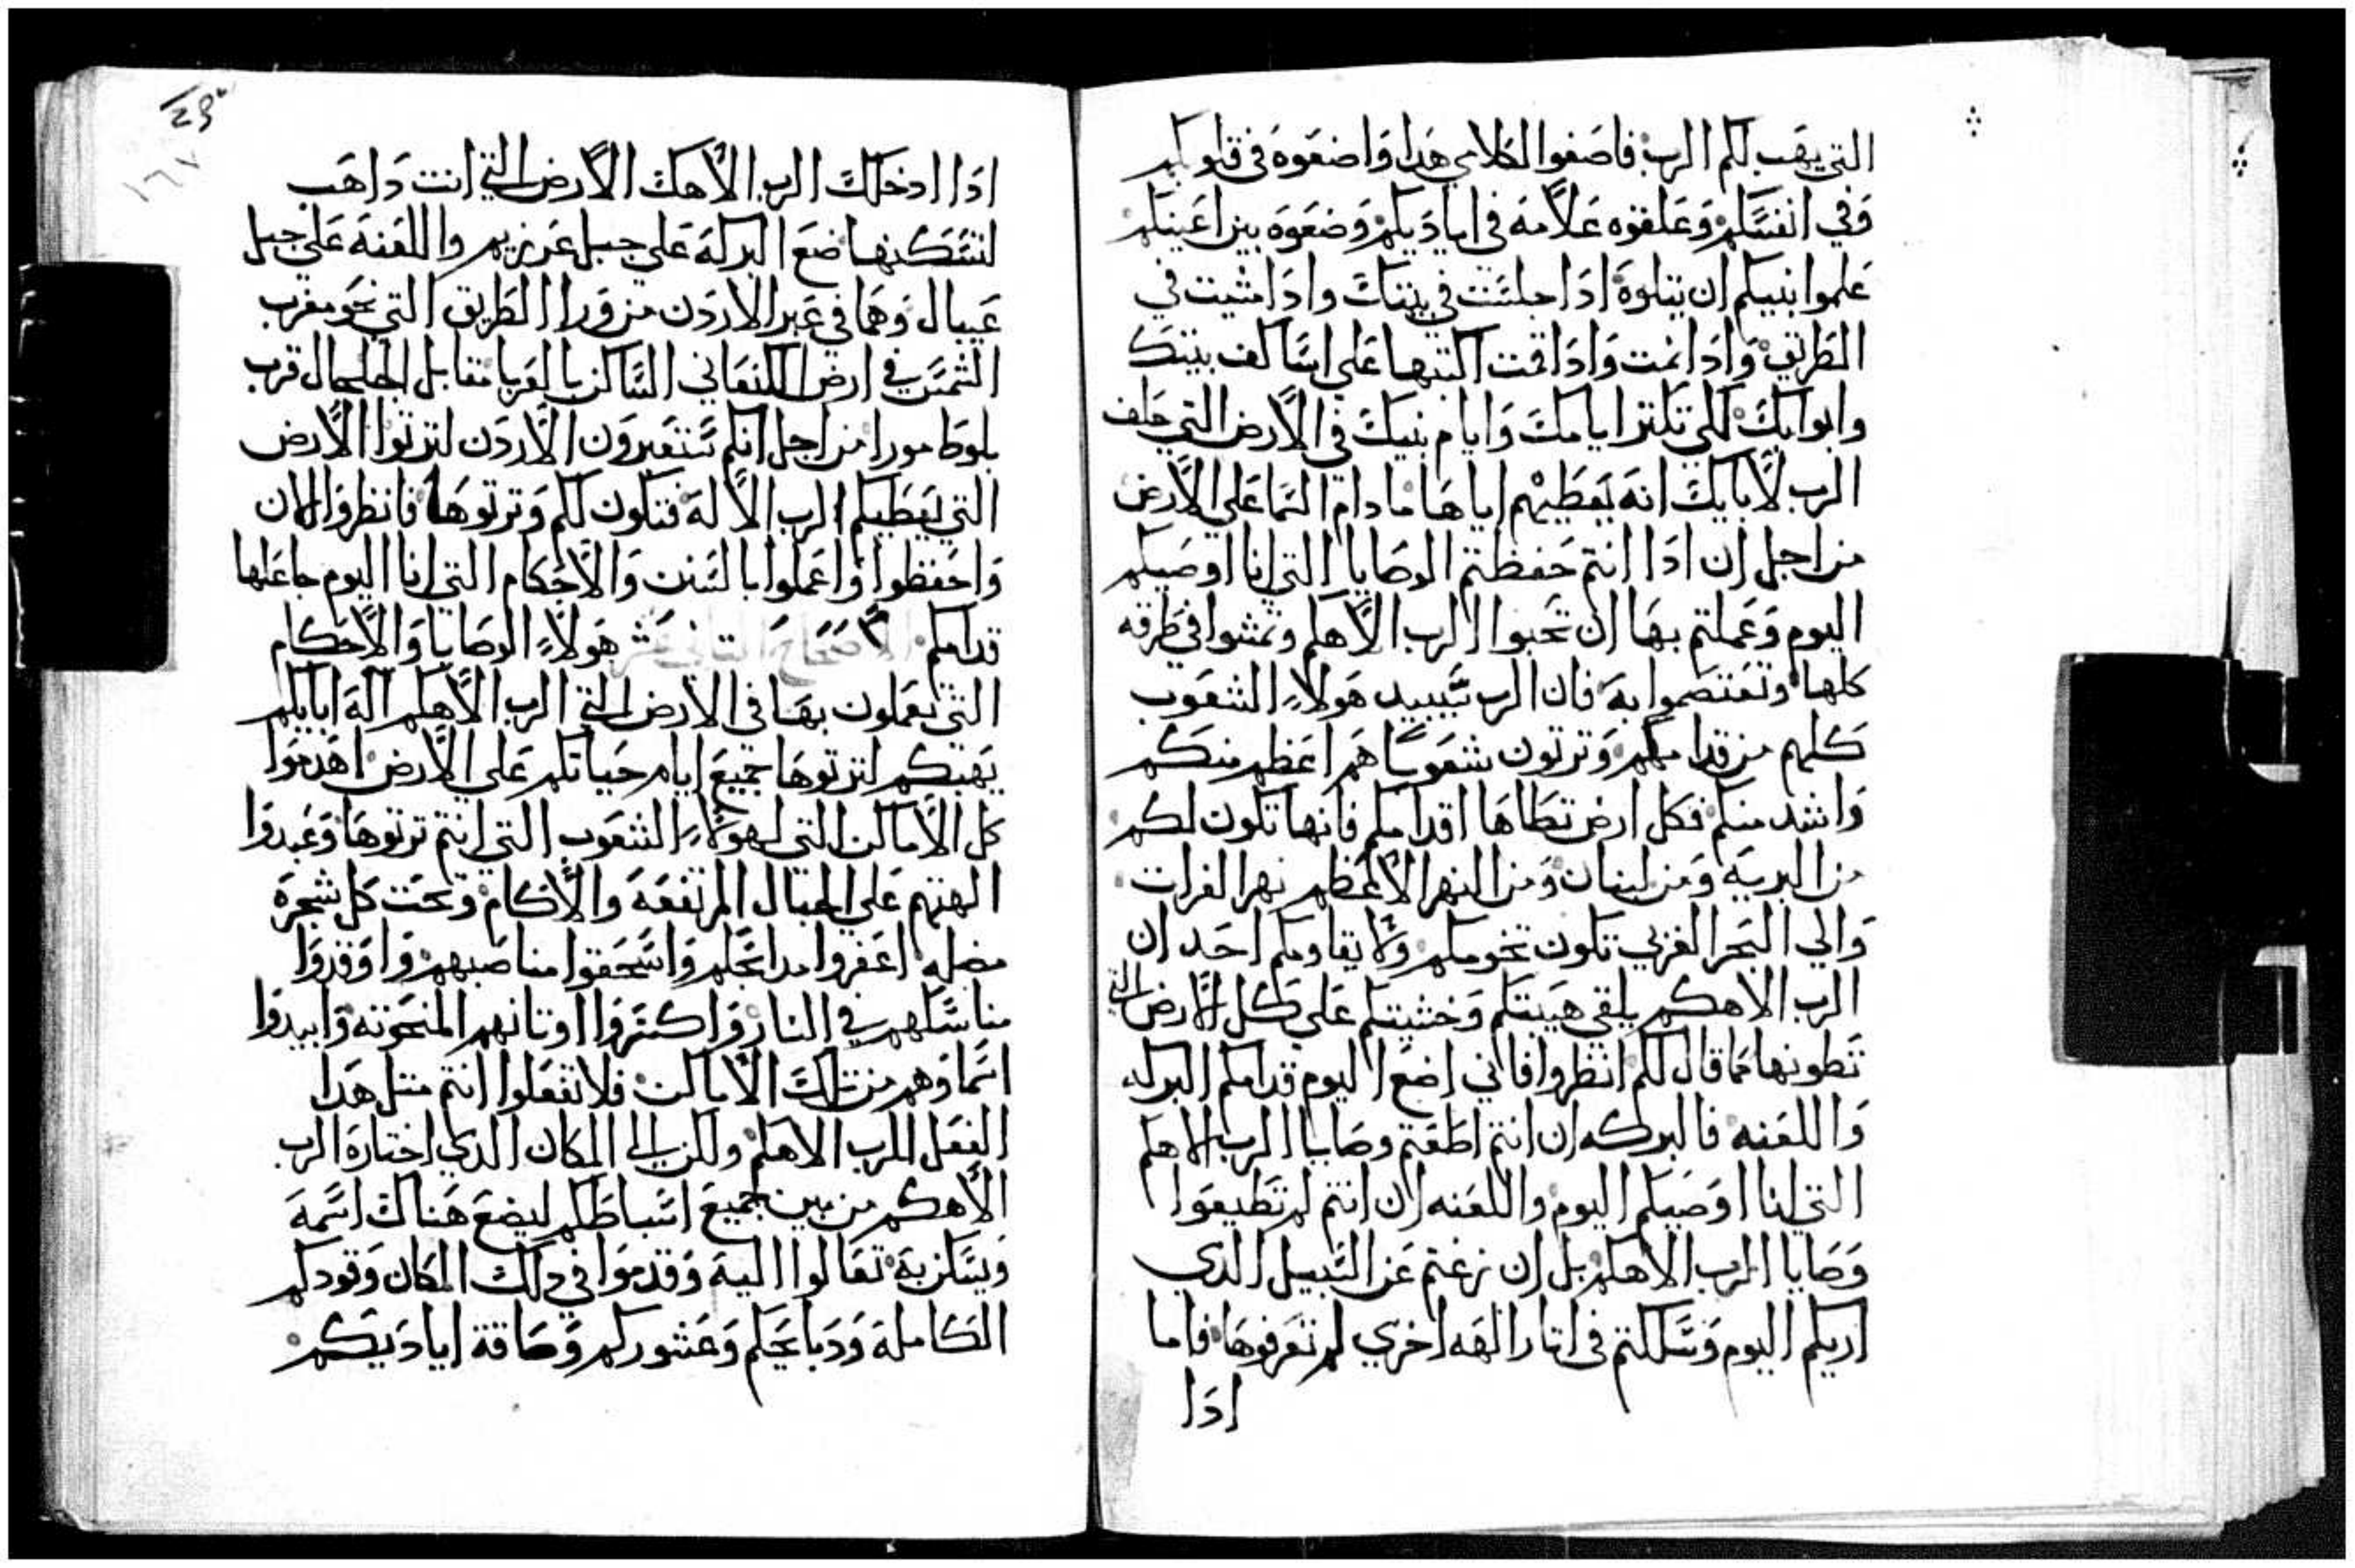 التي يهب لكم الرب فاصغوا لكلامي هدا واضعوه في قلوبكم
وفي انفسكم وعلقوه علامه في اياديكم وضعوه بين اعينكم
علموا بنيكم ان يتلوه ادا جلست في بيتك وادا مشيت في
الطريق وادا نمت وادا قمت اكتبها علي اساكف بيتك
وابوابك لكي تكتر ايامك وايام بنيك في الارض التي حلف
الرب لابايك انه يعطيهم اياها ما دام السما علي الارض
من اجل ان ادا انتم حفظتم الوصايا التي انا اوصيكم
اليوم وعملتم بها ان تحبوا الرب الاهكم وتمشوا في طرقه
كلها وتعتصموا به فان الرب يبيد هولاء الشعوب
كلهم من قدامكم وترتون شعوبا هم اعظم منكم
واشد منكم فكل ارض تطاها اقدامكم فانها تكون لكم
من البريه ومن لبنان ومن النهر الاعظم نهر الفرات
والي البحر الغربي تكون تخومكم ولا يقاومكم احد ان
الرب الاهكم يلقي هيبتكم وخشيتكم علي كل الارض التي
تطونها كما قال لكم انظروا فاني اضع اليوم قدامكم البركه
واللعنه فالبركه ان انتم اطعتم وصايا الرب الاهكم
التي انا اوصيكم اليوم واللعنه ان انتم لم تطيعوا
وصايا الرب الاهكم بل ان زغتم عن السبيل الدي
اريكم اليوم وسلكتم في اتار الهه اخري لم تعرفوها فاما
ادا
29
١٦٧
ادا ادخلك الرب الاهك الارض التي انت داهب
لتسكنها ضع البركة علي جبل غريزيم واللعنه علي جبل
عيبال وهما في عبر الاردن من ورا الطريق التي نحو مغرب
الشمس في ارض الكنعاني الساكن بالغربا مقابل الجلجال قرب
بلوط مورا من اجل انكم ستعبرون الاردن لترتوا الارض
التي يعطيكم الرب الاله فتكون لكم وترتوها فانظروا الان
واحفظوا واعملوا بالسنن والاحكام التي انا اليوم جاعلها
قدامكم الاصحاح التاني عشر هولاء الوصايا والاحكام
التي تعملون بها في الارض التي الرب الاهكم اله ابايكم
يهبكم لترتوها جميع ايام حياتكم علي الارض اهدموا
كل الاماكن التي لهولاء الشعوب التي انتم ترتوها وعبدوا
الهتهم علي الجبال المرتفعه والاكام وتحت كل شجره
مضله اعفروا مدابحهم واسحقوا مناصبهم واوقدوا
مناسكهم في النار واكسروا اوتانهم المنحوته وابيدوا
اسماوهم من تلك الاماكن فلا تفعلوا انتم متل هدا
الفعل للرب الاهكم ولكن الي المكان الدي اختاره الرب
الاهكم من بين جميع اسباطكم ليضع هناك اسمه
ويسكن به تعالوا اليه وقدموا في دلك المكان وقودكم
الكامله ودبايحكم وعشوركم وصاقة اياديكم